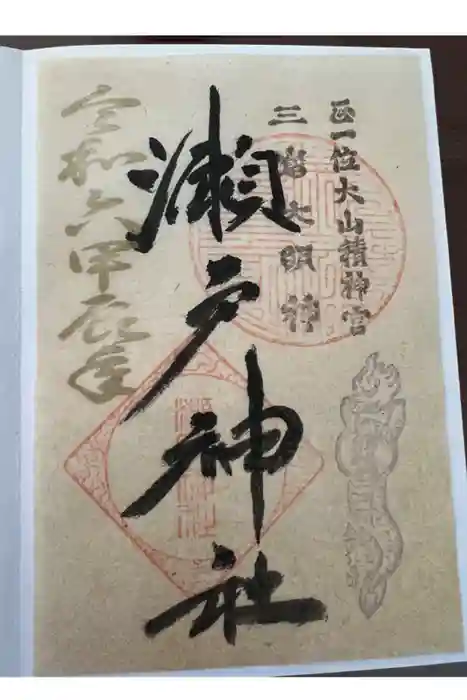 正一位大山積神宮
三島大明神
瀬戸神社
令和六甲辰年